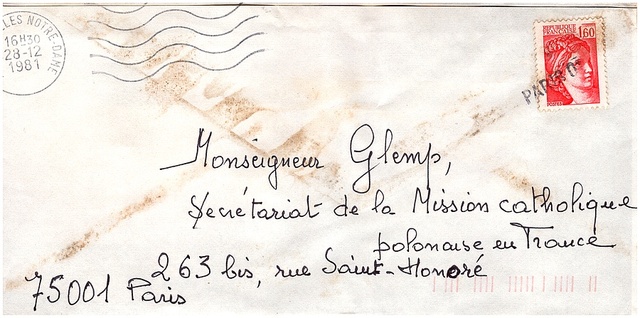 LLES NOTRE-DAME
16H30
28-12
1981
RÉPUBLIQUE FRANÇAISE
1,60
POSTES
Monseigneur Glemp,
Secrétariat de la Mission catholique
polonaise en France
263 bis, rue Saint-Honoré
75001 Paris